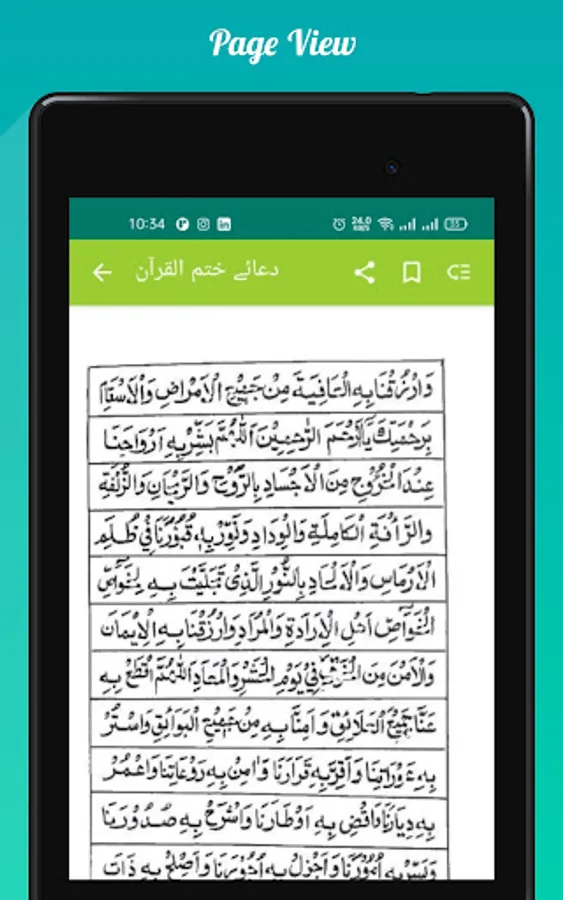 Page View
10:34
24.0
KB/S
35
دعائے ختم القرآن
وَارْزُقْنَا بِهِ الْعَافِيَةَ مِنْ جَمِيْعِ الْاَمْرَاضِ وَالْاَسْقَامِ
بِرَحْمَتِكَ يَا اَرْحَمَ الرَّاحِمِيْنَ اَللّٰهُمَّ بَشِّرْ بِهِ اَرْوَاحَنَا
عِنْدَ الْخُرُوْجِ مِنَ الْاَجْسَادِ بِالرَّوْحِ وَالرَّيْحَانِ وَالزُّلْفَةِ
وَالرَّأْفَةِ الْكَامِلَةِ وَالْوِدَادِ وَنَوِّرْ بِهٖ قُبُوْرَنَا فِيْ ظُلَمِ
الْاَرْمَاسِ وَالْاَلْحَادِ بِالنُّوْرِ الَّذِيْ تَجَلَّيْتَ بِهِ لِخَوَاصِّ
الْخَوَاصِّ اَهْلِ الْاِرَادَةِ وَالْمُرَادِ وَارْزُقْنَا بِهِ الْاِيْمَانَ
وَالْاَمْنَ مِنَ فِيْ يَوْمِ الْحَشْرِ وَالْمَعَادِ اَللّٰهُمَّ اقْطَعْ بِهِ
عَنَّا جَمِيْعَ الْعَلَائِقِ وَاٰمِنَّا بِهِ مِنْ جَمِيْعِ الْبَوَائِقِ وَاسْتُرْ
بِهِ عَوْرَاتِنَا وَاَقِرَّ بِهِ قَرَارَنَا وَاٰمِنْ بِهِ رَوْعَاتِنَا وَاعْمُرْ
بِهِ دِيَارَنَا وَاقْضِ بِهِ اَوْطَارَنَا وَاشْرَحْ بِهِ صُدُوْرَنَا
وَيَسِّرْ بِهِ اُمُوْرَنَا وَاَجْزِلْ بِهِ اُجُوْرَنَا وَاَصْلِحْ بِهِ ذَاتَ